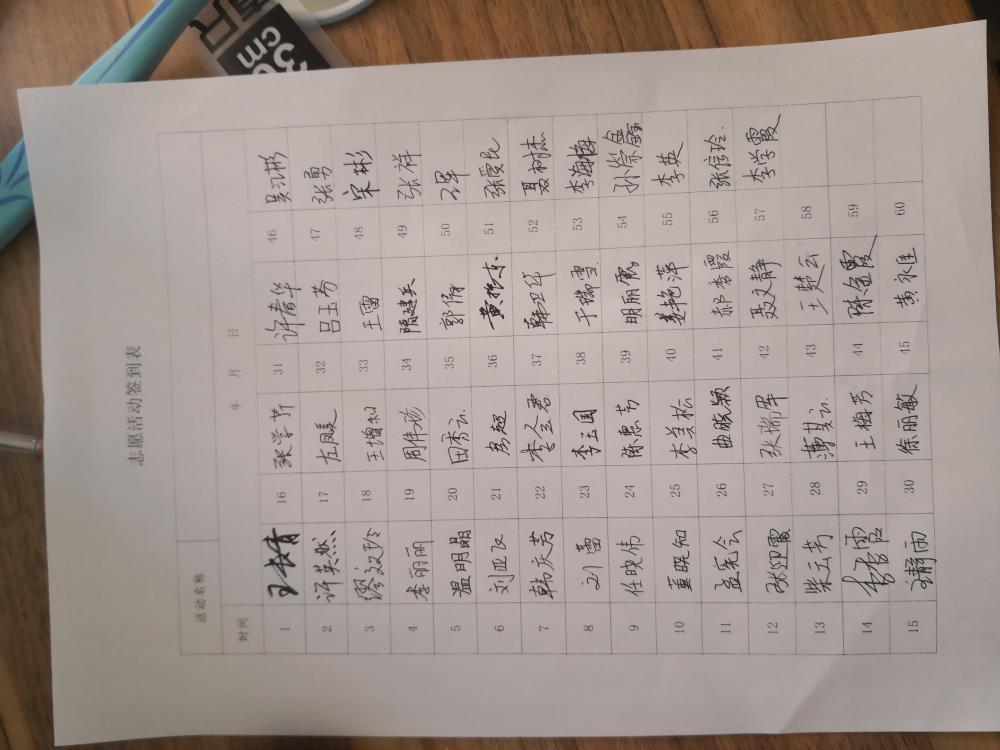 志愿活动签到表
活动名称
时间 年 月 日
1 16 张学芹 31 许春华 46 吴习彬
2 许英然 17 左凤美 32 吕玉芬 47 张勇
3 缪文玲 18 王增知 33 王雷 48 宋彬
4 李丽丽 19 周伟 34 隋建兵 49 张祥
5 温明晶 20 田秀云 35 郭倩 50
6 刘亚飞 21 房超 36 黄振东 51 张爱民
7 韩庆芳 22 李会君 37 韩卫华 52 聂树杰
8 刘蕾 23 李玉国 38 于瑞雪 53 李海梅
9 任晓伟 24 陈惠芳 39 明丽霞 54 孙崇鑫
10 董晓知 25 李美松 40 姜艳萍 55 李英
11 孟宪会 26 曲晓颖 41 郝秀霞 56 张彦玲
12 张迎霞 27 张瑞军 42 聂文静 57 李学霞
13 柴云芳 28 薄其云 43 王楚云 58
14 李雪 29 王梅芳 44 陈金霞 59
15 王静雨 30 徐丽敏 45 黄永佳 60
cm